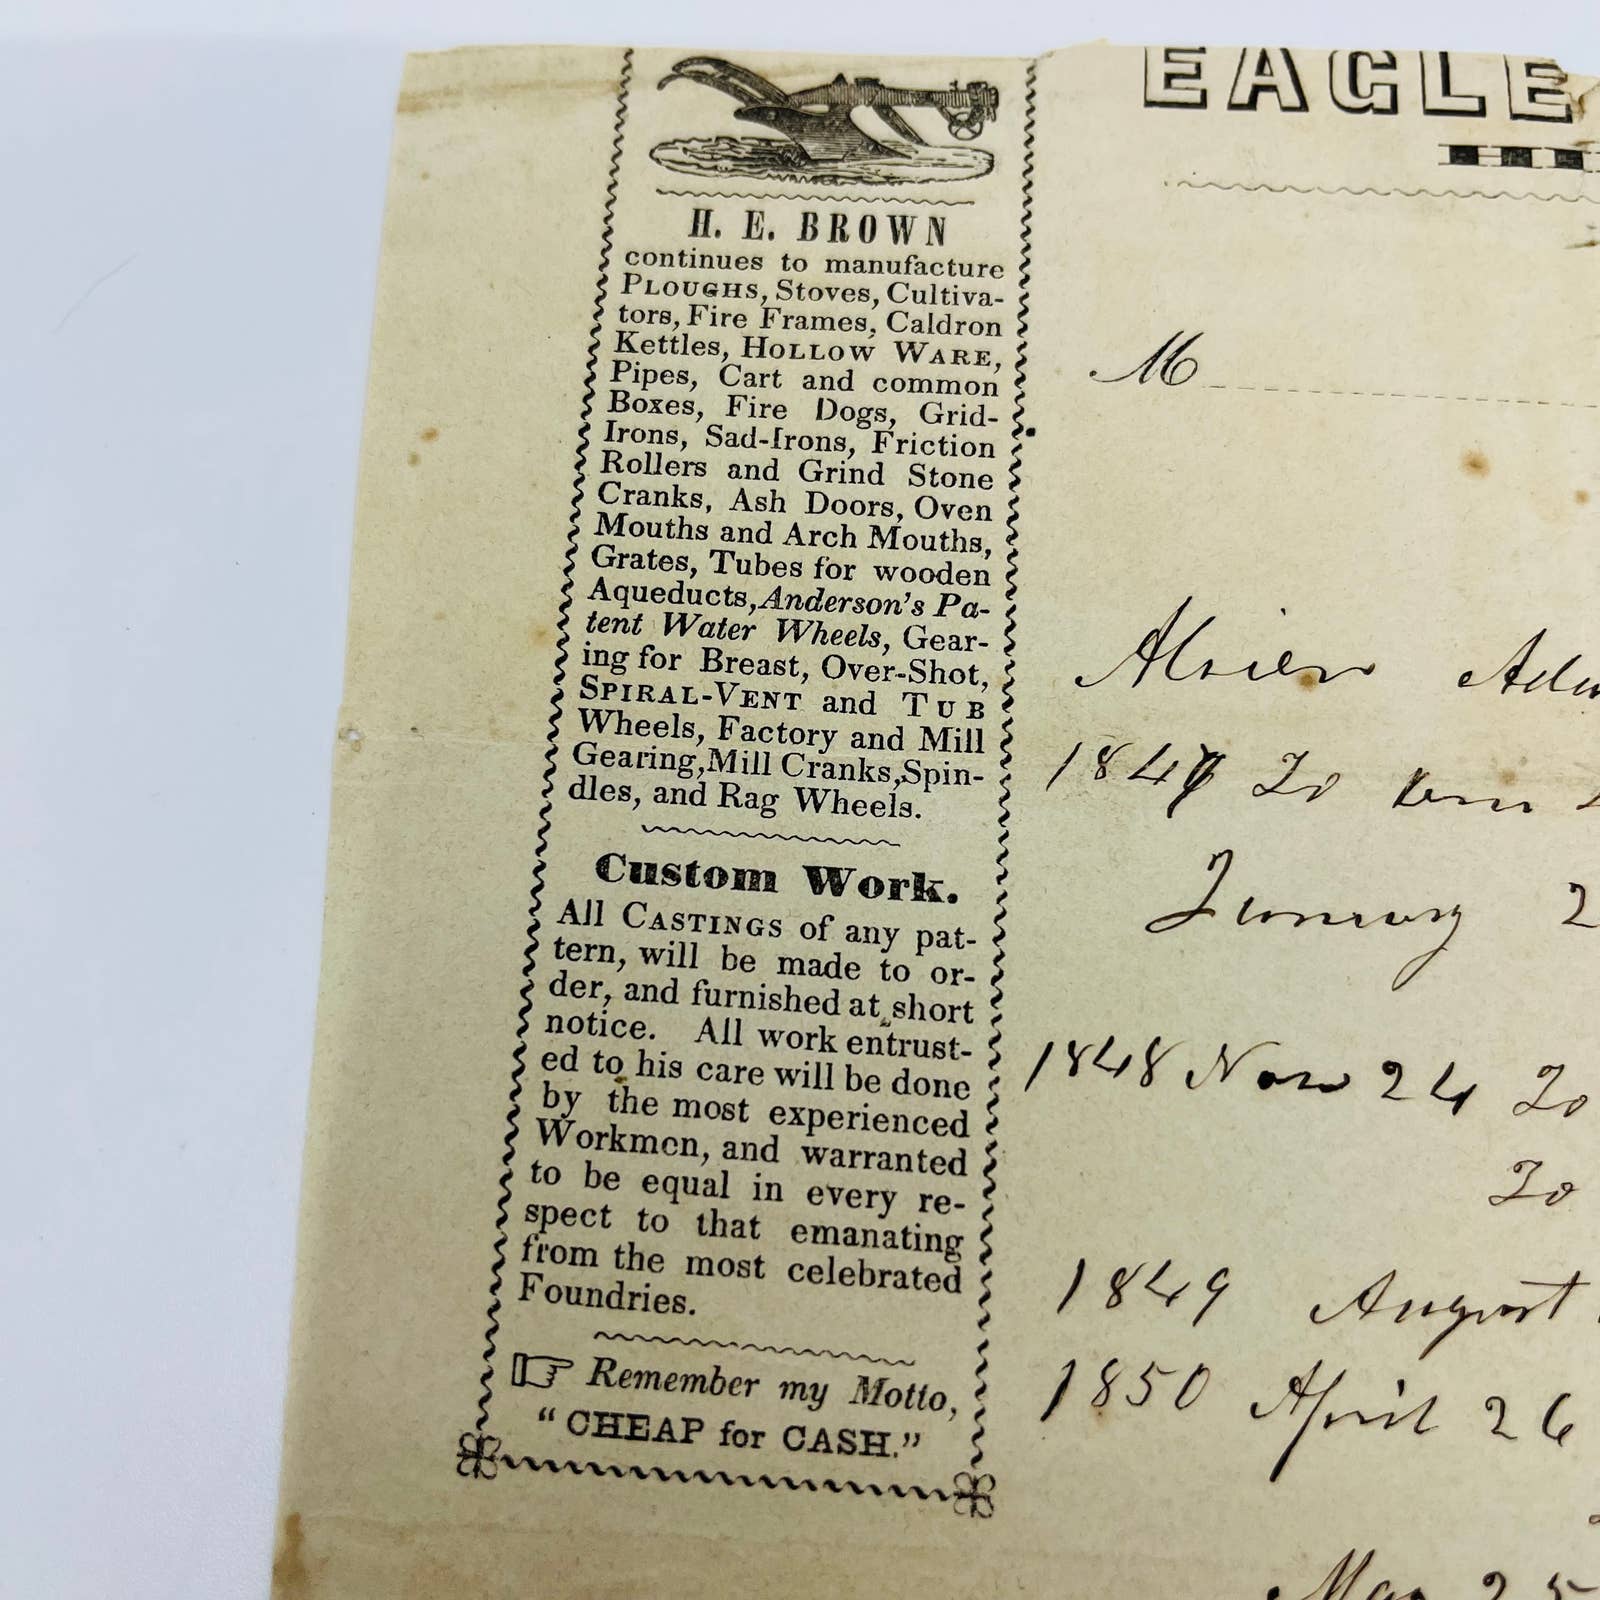 EAGLE
H. E. BROWN
continues to manufacture
PLOUGHS, Stoves, Cultiva-
tors, Fire Frames, Caldron
Kettles, HOLLOW WARE,
Pipes, Cart and common
Boxes, Fire Dogs, Grid-
Irons, Sad-Irons, Friction
Rollers and Grind Stone
Cranks, Ash Doors, Oven
Mouths and Arch Mouths,
Grates, Tubes for wooden
Aqueducts, Anderson's Pa-
tent Water Wheels, Gear-
ing for Breast, Over-Shot,
SPIRAL-VENT and TUB
Wheels, Factory and Mill
Gearing, Mill Cranks, Spin-
dles, and Rag Wheels.
Custom Work.
All CASTINGS of any pat-
tern, will be made to or-
der, and furnished at short
notice. All work entrust-
ed to his care will be done
by the most experienced
Workmen, and warranted
to be equal in every re-
spect to that emanating
from the most celebrated
Foundries.
Remember my Motto,
"CHEAP for CASH."
M
1847 To
January 2
1848 Nov 24 To
To
1849 August
1850 April 26
May 25